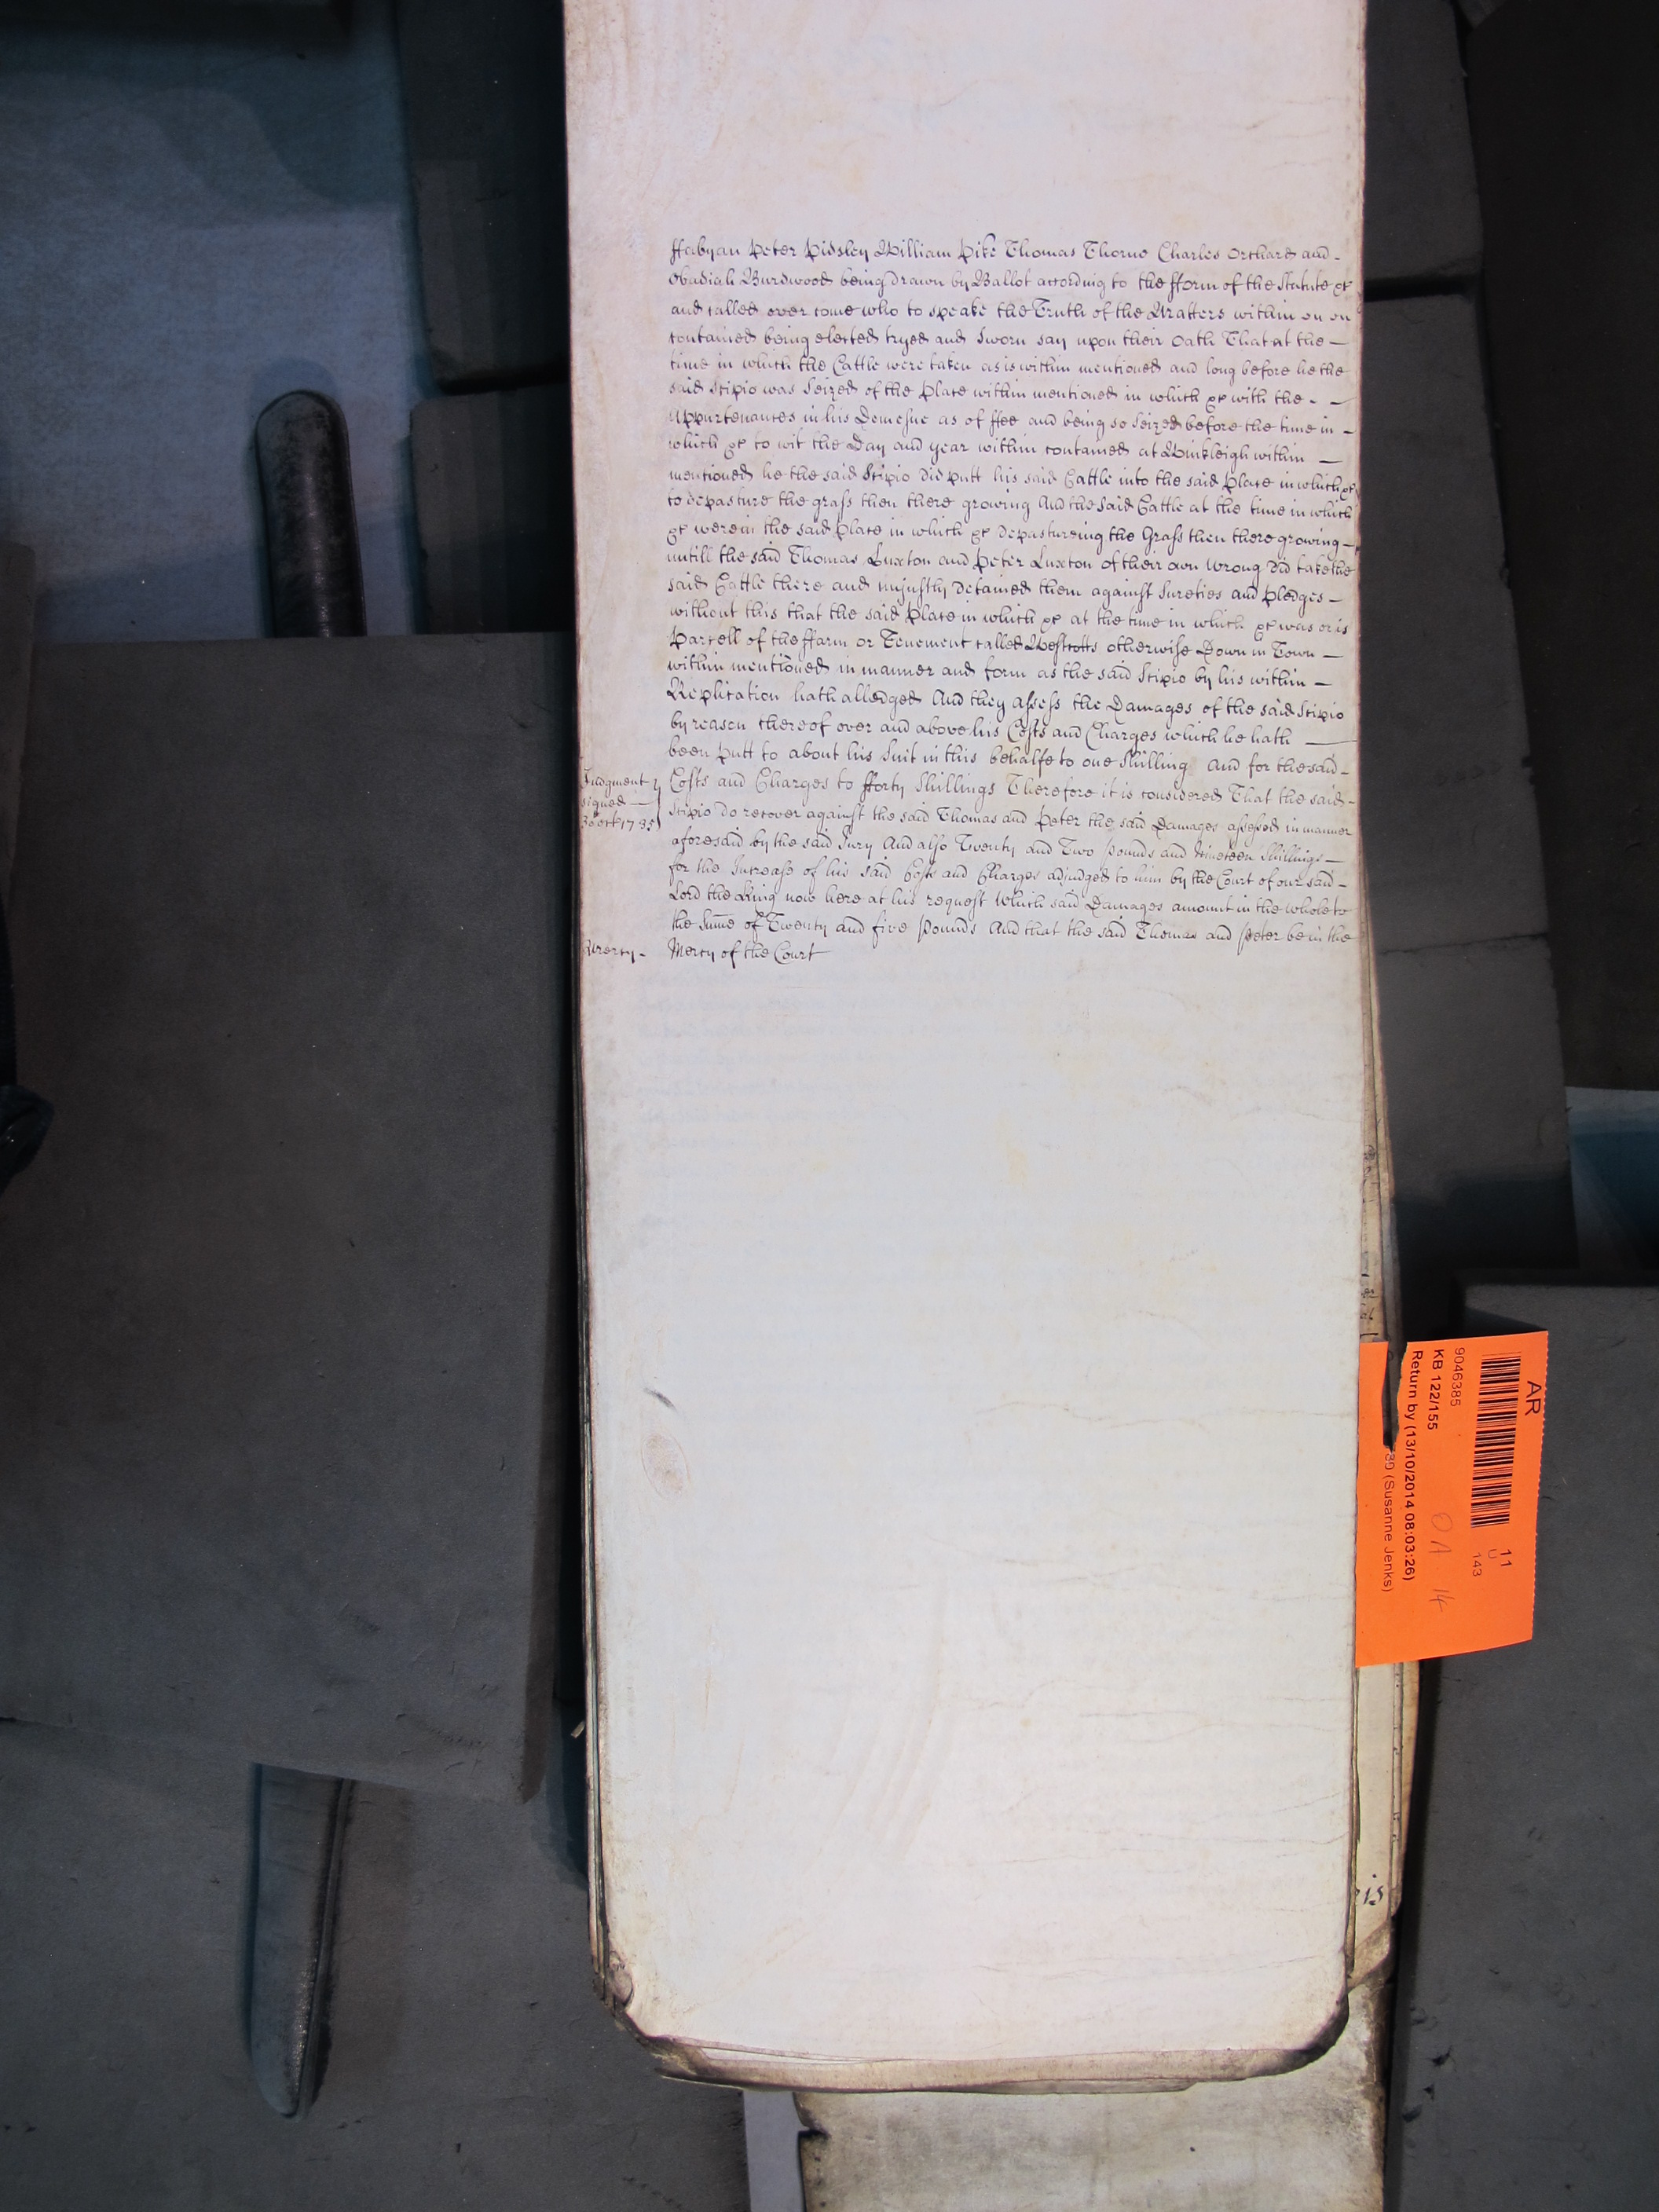 ffabyan Peter Pidsley William Pike Thomas Thorne Charles Orchard and
Obadiah Burdwood being drawn by Ballot according to the fform of the Statute &c
and called over come who to speake the Truth of the Matters within
contained being elected tryed and Sworn say upon their Oath That at the
time in which the Cattle were taken as is within mentioned and long before he the
said Scipio was Seized of the place within mentioned in which &c with the
Appurtenances in his Demesne as of ffee and being so Seized before the time in
which &c to wit the Day and year within contained at Winkleigh within
mentioned he the said Scipio did putt his said Cattle into the said place in which &c
to depasture the grass then there growing And the said Cattle at the time in which
&c were in the said place in which &c depastureing the Grass then there growing
untill the said Thomas Luxton and Peter Luxton of their own Wrong did take the
said Cattle there and unjustly detained them against Sureties and pledges
without this that the said place in which &c at the time in which &c was or is
Parcell of the ffarm or Tenement called otherwise Down in Town
within mentioned in manner and form as the said Scipio by his within
Replication hath alledged And they assess the Damages of the said Scipio
by reason thereof over and above his Costs and Charges which he hath
been putt to about his Suit in this behalfe to one Shilling And for the said
Costs and Charges to fforty Shillings Therefore it is considered That the said
Scipio do recover against the said Thomas and Peter the said Damages assessed in manner
aforesaid by the said Jury And also Twenty and Two pounds and Nineteen Shillings
for the Increase of his said Costs and Charges adjudged to him by the Court of our said
Lord the King now here at his request Which said Damages amount in the whole to
the Sume of Twenty and five pounds And that the said Thomas and Peter be in the
Mercy of the Court
Judgment
signed
1735
Mercy
AR
11
U
143
9046385
KB 122/155
Return by (13/10/2014 08:03:26)
(Susanne Jenks)
14